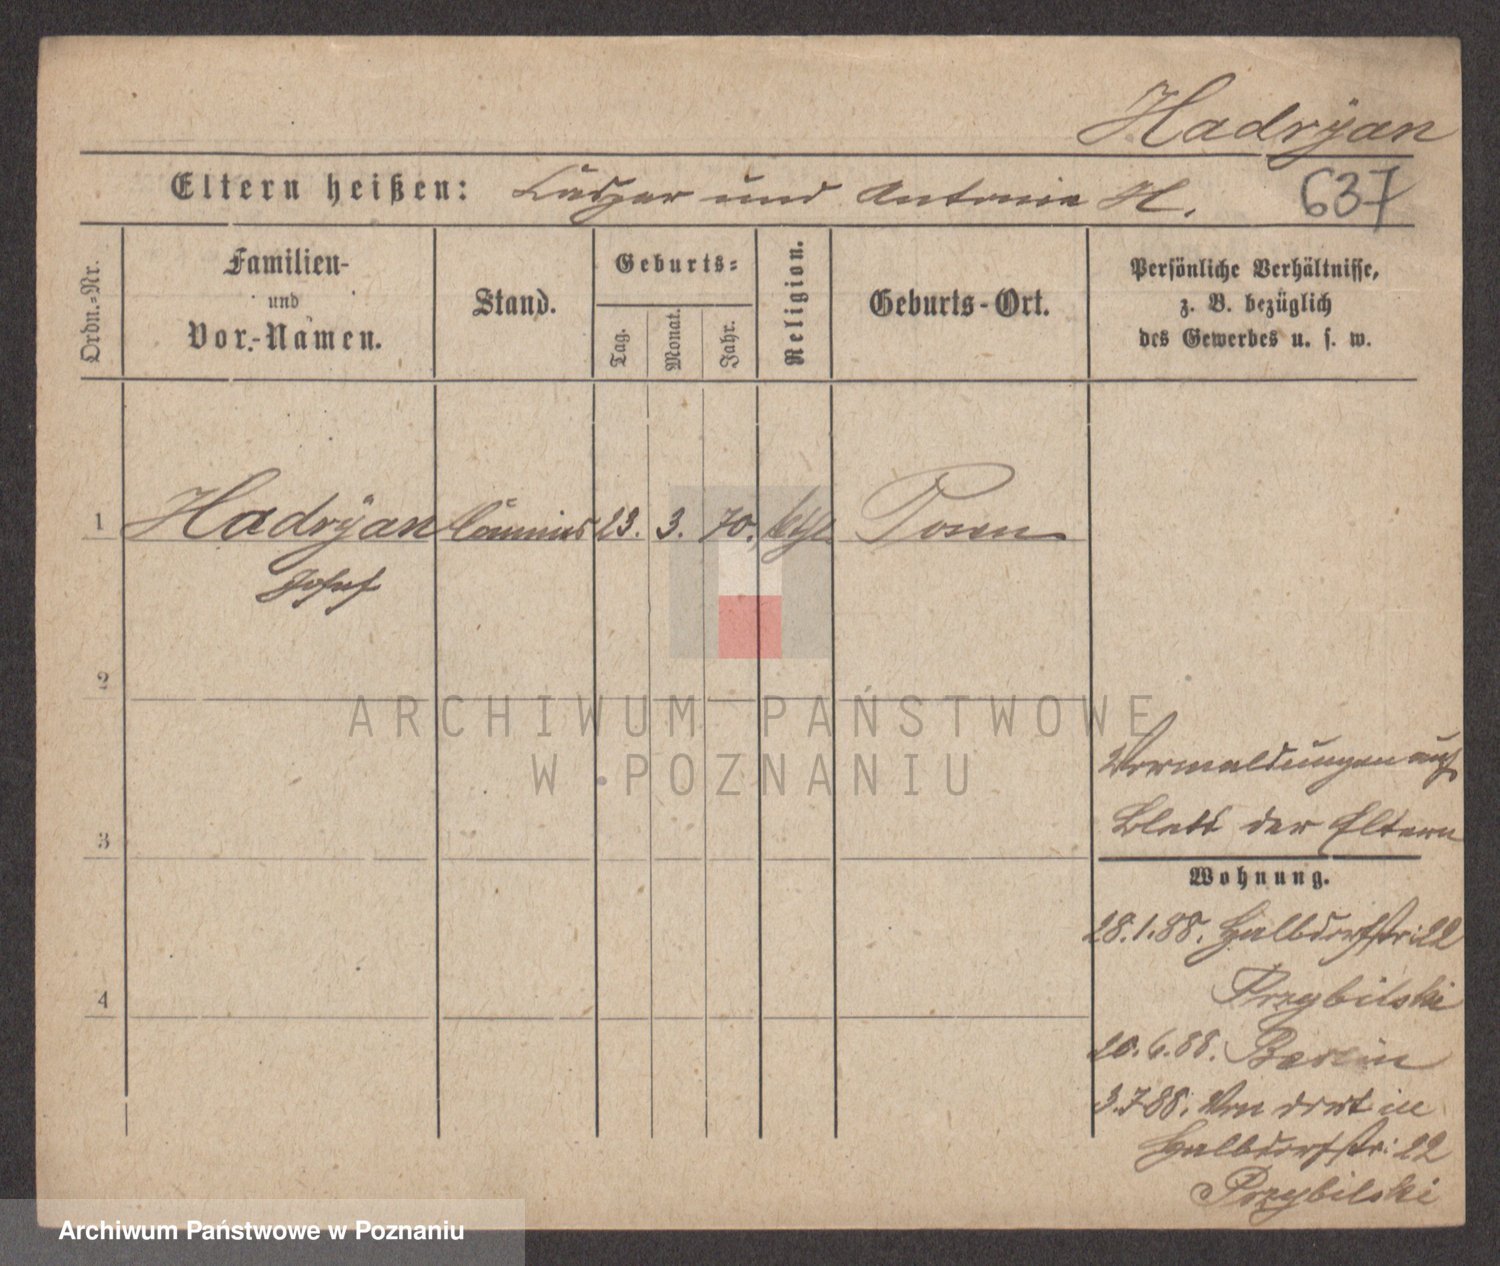 Hadrÿan
Eltern heißen: und Antonie H. 637
Ordn.-Nr.
Familien-
und
Vor-Namen.
Stand.
Geburts-
Tag.
Monat.
Jahr.
Religion.
Geburts-Ort.
Persönliche Verhältnisse,
z. B. bezüglich
des Gewerbes u. s. w.
1 Hadrÿan Commis 23. 3. 70. kth Posen
Josef
2
ARCHIWUM PAŃSTWOWE
W POZNANIU
Vermeldungen auf
Blatt der Eltern
3
Wohnung.
28.1.88. Halbdorfstr: 22
Przybilski
4
20.6.88. Berlin
3.7.88. Von dort in
Halbdorfstr: 22
Przybilski
Archiwum Państwowe w Poznaniu